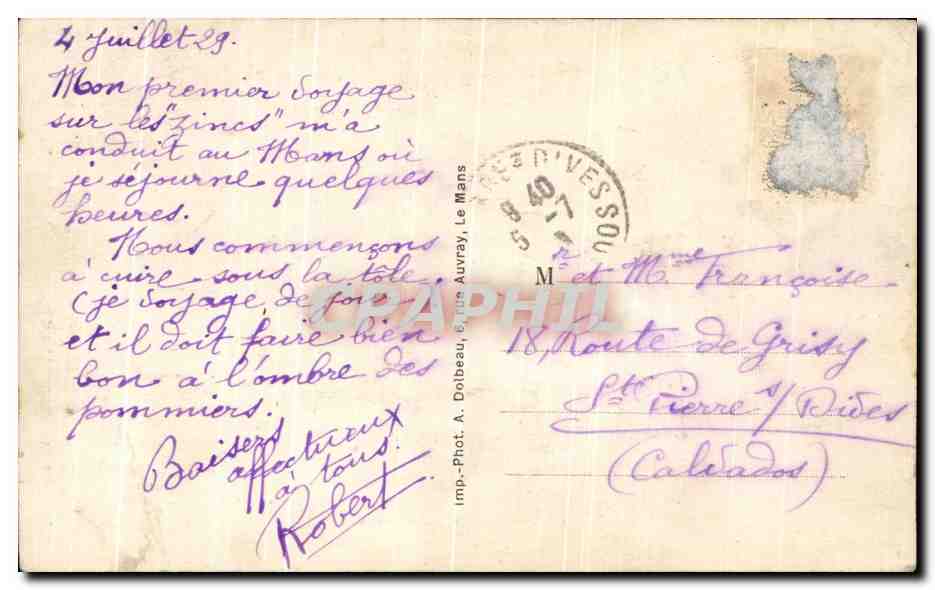 4 Juillet 29.
Mon premier voyage
sur les "zincs" m'a
conduit au Mans où
je séjourne quelques
heures.
Nous commençons
à cuire sous la tôle.
(je voyage de jour)
et il doit faire bien
bon à l'ombre des
pommiers.
Baisers
affectueux
à tous.
Robert
Imp.-Phot. A. Dolbeau, 6, rue Auvray, Le Mans
D'VESSOU
8 40
5 - 7
Mr et Mme Françoise
18, Route de Grisy
St Pierre s/ Dives
(Calvados)
CPAPHIL